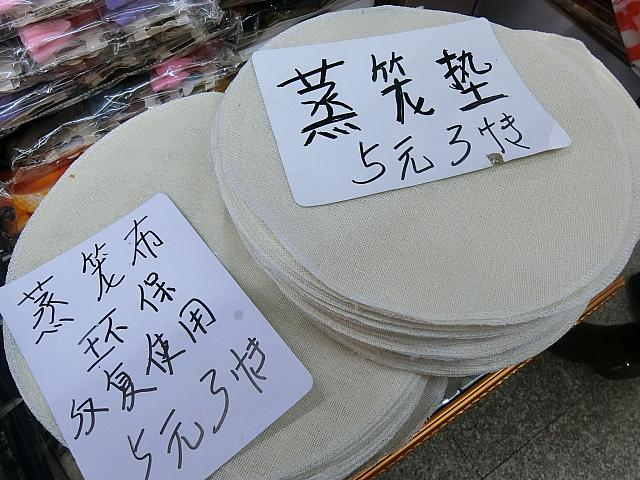 蒸笼垫
5元3块
蒸笼布
环保
反复使用
5元3块